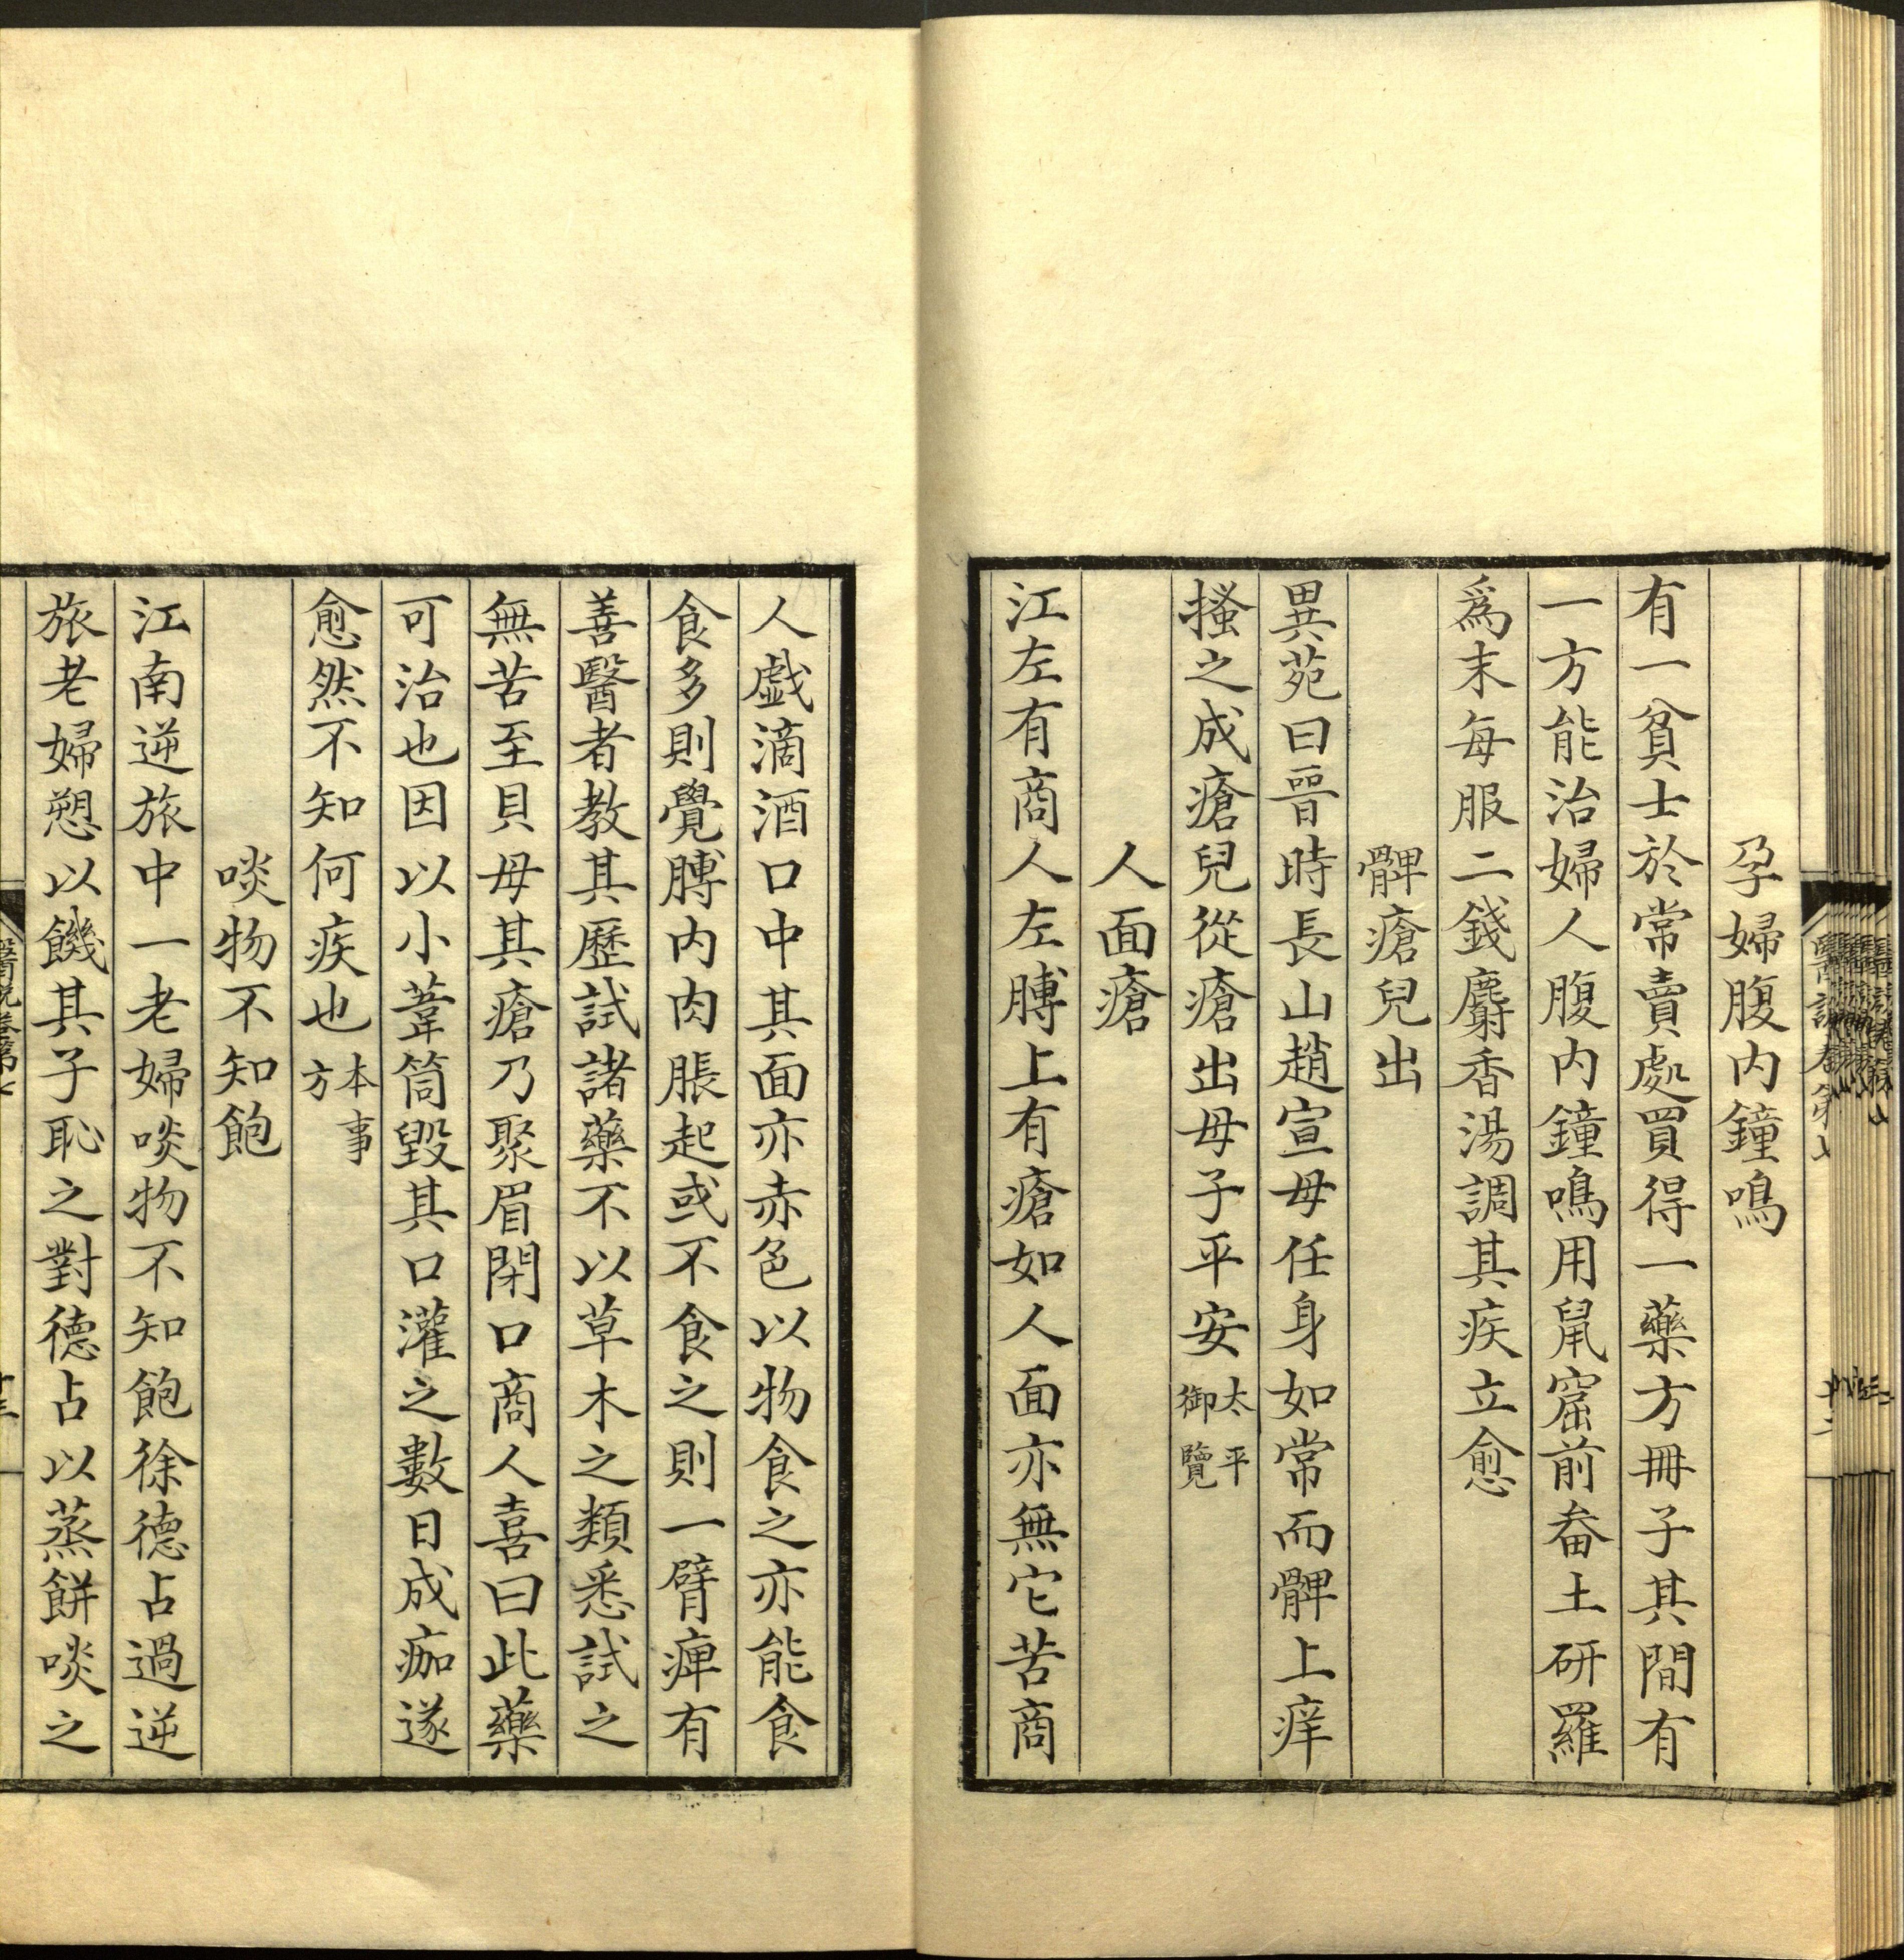 孕婦腹内鐘鳴
有一貧士於常賣處買得一藥方冊子其間有
一方能治婦人腹内鐘鳴用鼠窟前畚土研羅
爲末每服二錢麝香湯調其疾立愈
髀瘡兒出
異苑曰晉時長山趙宣母任身如常而髀上痒
搔之成瘡兒從瘡出母子平安太平御覽
人面瘡
江左有商人左膊上有瘡如人面亦無它苦商
人戲滴酒口中其面亦赤色以物食之亦能食
食多則覺膊内肉脹起或不食之則一臂痺有
善醫者教其歷試諸藥不以草木之類悉試之
無苦至貝母其瘡乃聚眉閉口商人喜曰此藥
可治也因以小葦筒毀其口灌之數日成痂遂
愈然不知何疾也本事方
啖物不知飽
江南逆旅中一老婦啖物不知飽徐德占過逆
旅老婦愬以饑其子恥之對德占以蒸餅啖之